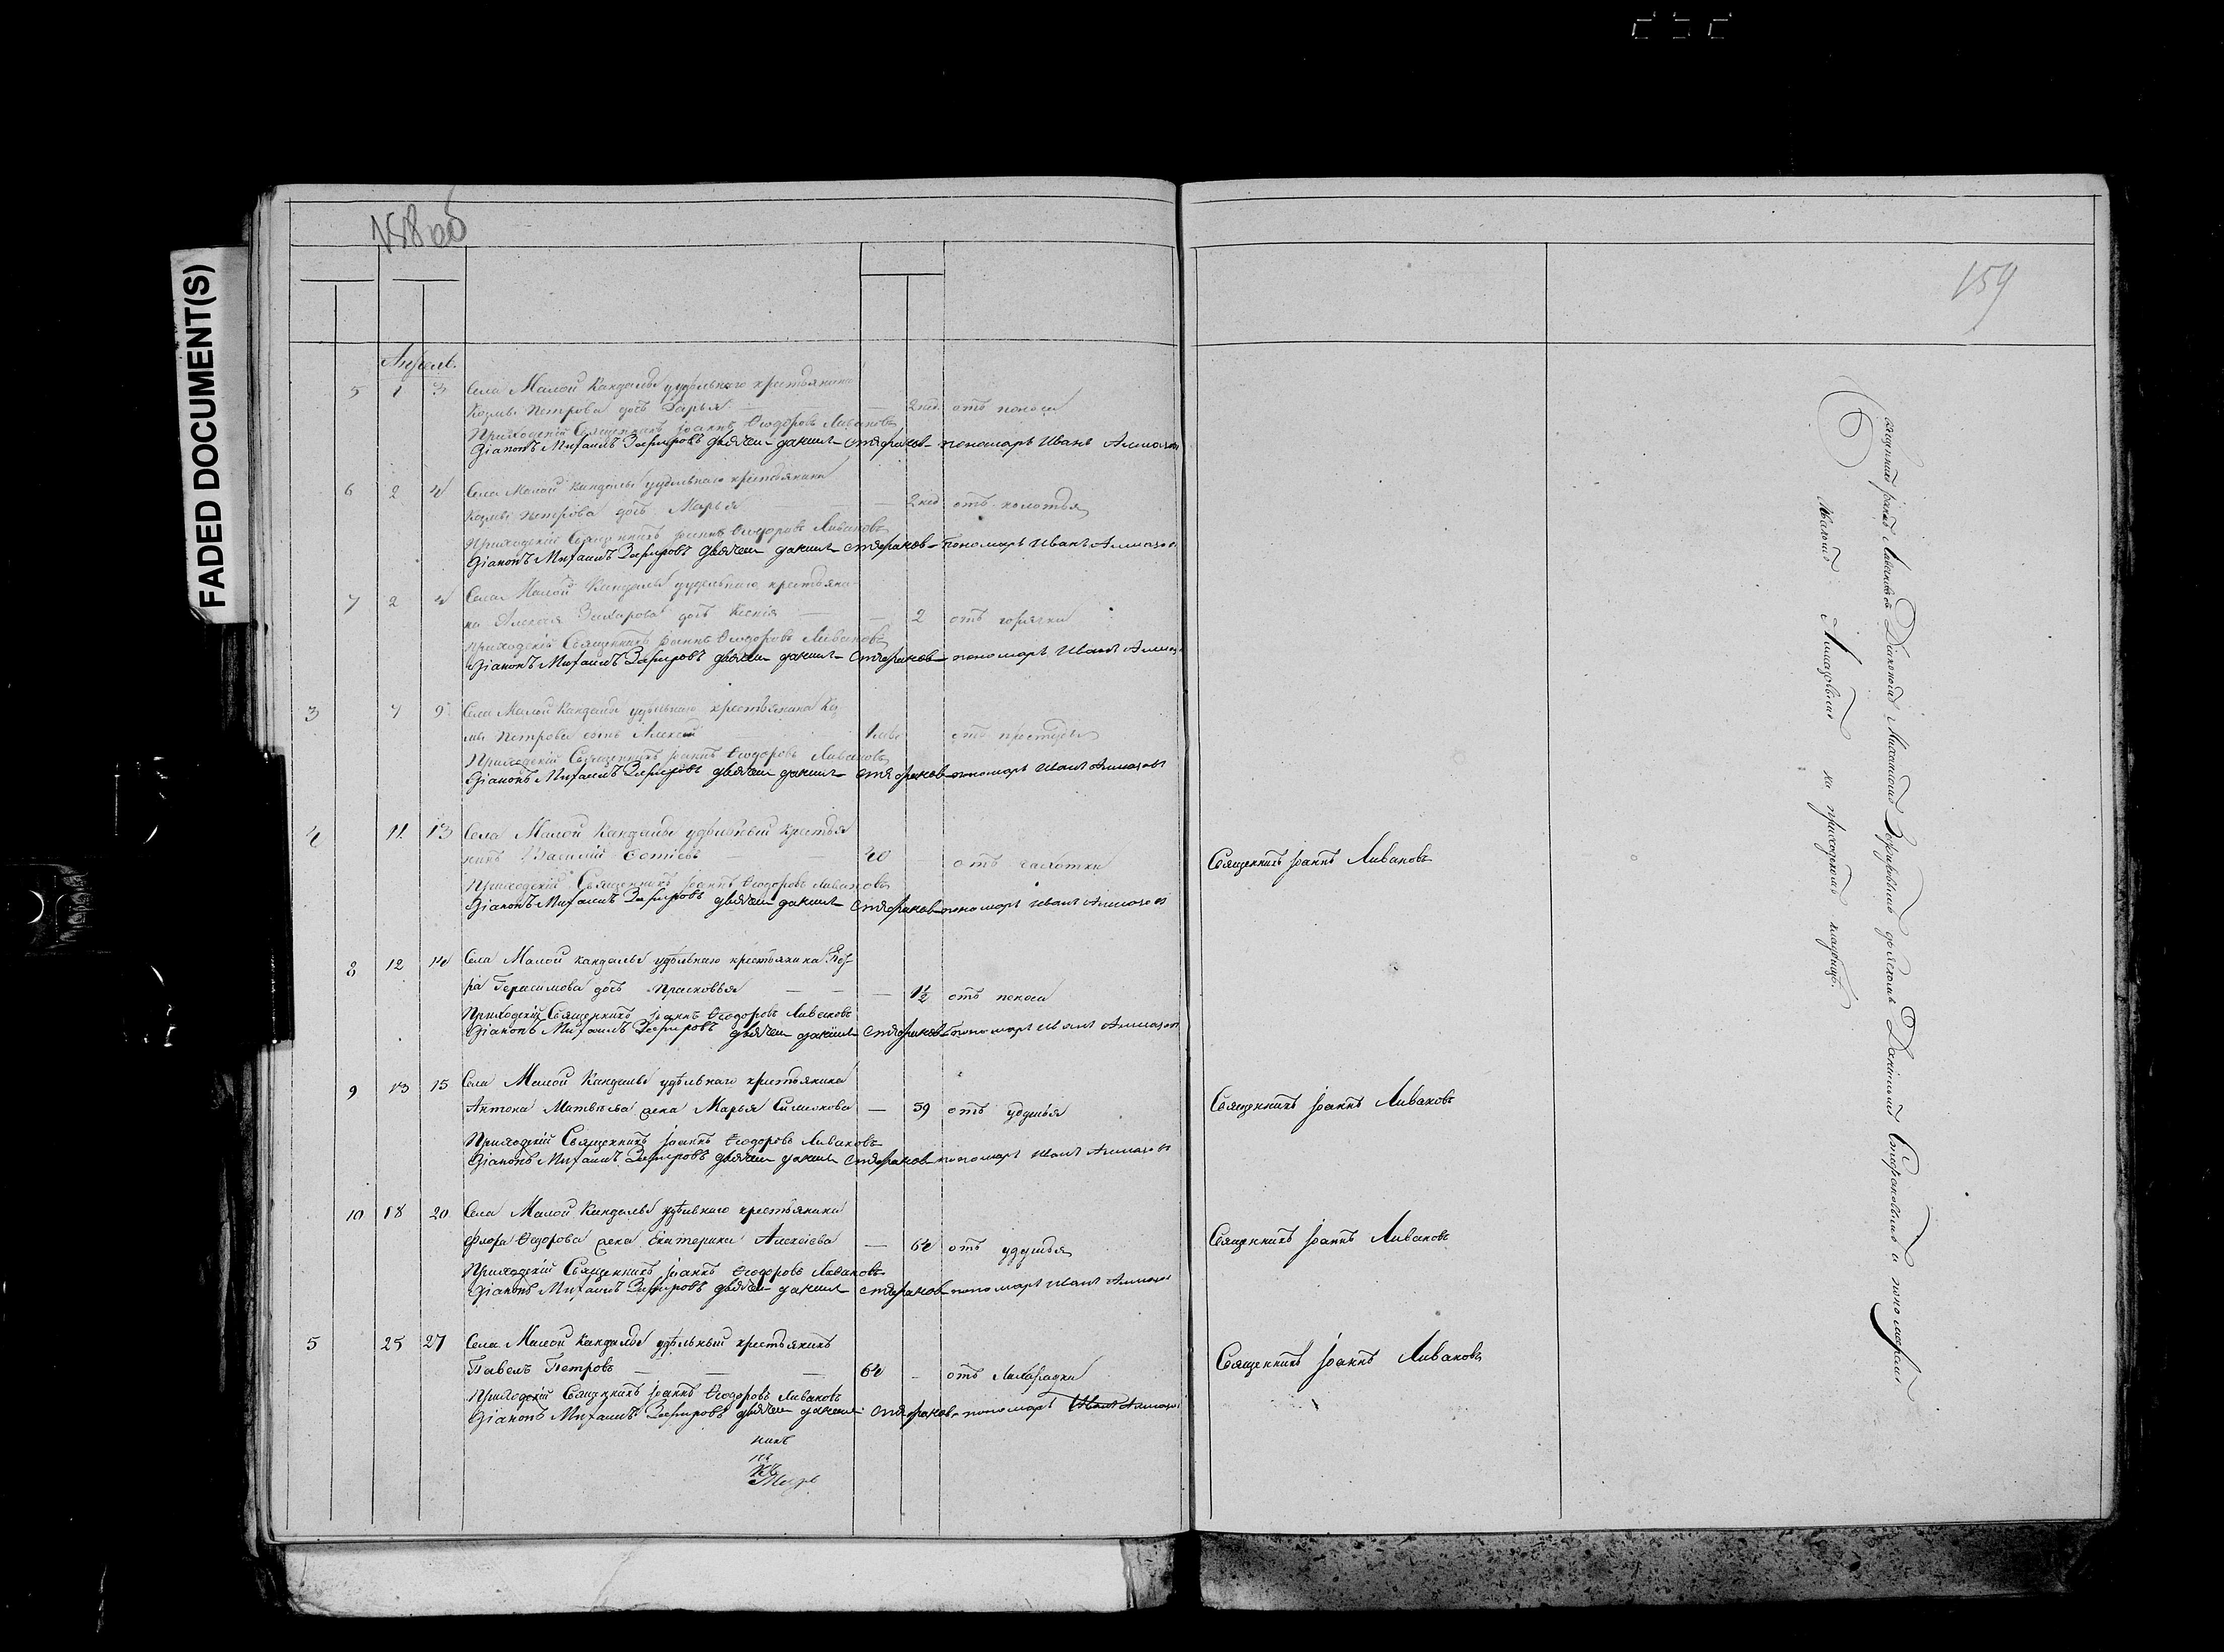 FADED DOCUMENT(S)
158 об
159
Апрель.
5 1 3 Села Малой Кандалы удѣльнаго крестьянина
Козьмы Петрова дочь Дарья — — 2 нед. отъ поноса
Приходскій Священникъ Іоаннъ Ѳеодоровъ Ливановъ
Діаконъ Михаилъ Зефировъ дьячекъ Данiилъ Стефановъ пономарь Иванъ Алмазовъ
6 2 4 Села Малой Кандалы удѣльнаго крестьянина
Козьмы Петрова дочь Марья — 2 нед отъ колотья
Приходскій Священникъ Іоаннъ Ѳеодоровъ Ливановъ
Діаконъ Михаилъ Зефировъ дьячекъ Данiилъ Стефановъ пономарь Иванъ Алмазов
7 2 4 Села Малой Кандалы удѣльнаго крестьяни-
на Алексѣя Захарова дочь Ксенія — — 2 отъ горячки
Приходскій Священникъ Іоаннъ Ѳеодоровъ Ливановъ
Діаконъ Михаилъ Зефировъ дьячекъ Данiилъ Стефановъ пономарь Иванъ Алмаз
3 7 9 Села Малой Кандалы удѣльнаго крестьянина Коз
мы Петрова сынъ Алексѣй 1 отъ простуды
Приходскій Священникъ Іоаннъ Ѳеодоровъ Ливановъ
Діаконъ Михаилъ Зефировъ дьячекъ Данiилъ Стефановъ пономарь Иванъ Алмазовъ
4 11 13 Села Малой Кандалы удѣльный крестья
нинъ Василій Фотіевъ — — 40 отъ чахотки Священникъ Іоаннъ Ливановъ
Приходскій Священникъ Іоаннъ Ѳеодоровъ Ливановъ
Діаконъ Михаилъ Зефировъ дьячекъ Данiилъ Стефановъ пономарь Иванъ Алмазовъ
8 12 14 Села Малой Кандалы удѣльнаго крестьянина
Герасимова дочь Прасковья — — — 1½ отъ поноса
Приходскій Священникъ Іоаннъ Ѳеодоровъ Ливановъ
Діаконъ Михаилъ Зефировъ дьячекъ Данiилъ Стефановъ пономарь Иванъ Алмазов
9 13 15 Села Малой Кандалы удѣльнаго крестьянина
Антона Матвѣева жена Марья Симионова — 59 отъ удушья Священникъ Іоаннъ Ливановъ
Приходскій Священникъ Іоаннъ Ѳеодоровъ Ливановъ
Діаконъ Михаилъ Зефировъ дьячекъ Данiилъ Стефановъ пономарь Иванъ Алмазов
10 18 20 Села Малой Кандалы удѣльнаго крестьянина
Флора Ѳедорова жена Екатерина Алексіева — 64 отъ удушья Священникъ Іоаннъ Ливановъ
Приходскій Священникъ Іоаннъ Ѳеодоровъ Ливановъ
Діаконъ Михаилъ Зефировъ дьячекъ Данiилъ Стефановъ пономарь Иванъ Алмазов
5 25 27 Села Малой Кандалы удѣльный крестьянинъ
Павелъ Петровъ — — — 64 - отъ лихорадки Священникъ Іоаннъ Ливановъ
Приходскій Священникъ Іоаннъ Ѳеодоровъ Ливановъ
Діаконъ Михаилъ Зефировъ дьячекъ Данiилъ Стефановъ пономарь Иванъ Алмазов
Священникъ Іоаннъ Ливановъ съ Діакономъ Михаиломъ Зефировымъ дьячкомъ Даніиломъ Стефановымъ и пономаремъ
Иваномъ Алмазовымъ на приходскомъ кладбищѣ.